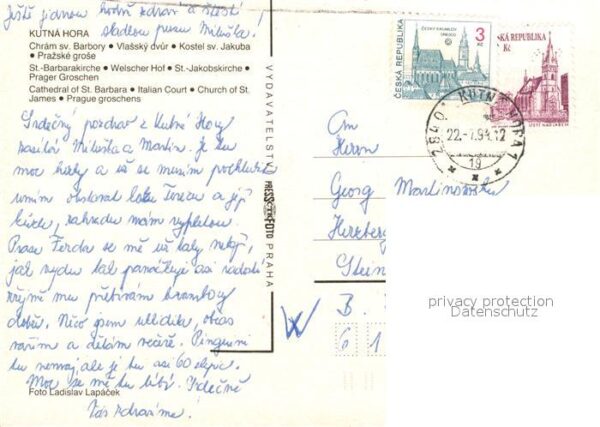 Ještě jednou hodně zdraví a štěstí
sladkou pusu Miluška.
KUTNÁ HORA
Chrám sv. Barbory • Vlašský dvůr • Kostel sv. Jakuba
• Pražské groše
St.-Barbarakirche • Welscher Hof • St.-Jakobskirche •
Prager Groschen
Cathedral of St. Barbara • Italian Court • Church of St.
James • Prague groschens
Srdečný pozdrav z Kutné Hory
zasílá Miluška a Martin. Je tu
moc hezky a už se musím pochlubit
umím obstarat Terezu a její
zahradu mám vypletou.
Prase Ferda se mě už taky nebojí,
jak vyjdu tak asi radostí
mu přebírám brambory
dobře. Něco jsem uklidila, občas
vařím a dělám večeře. Pinguini
tu nemají ale je tu asi 60 slepic.
Moc se mě tu líbí. Srdečně
Vás zdravíme!
Foto Ladislav Lapáček
VYDAVATELSTVÍ
PRESSFOTO
PRAHA
ČESKÁ REPUBLIKA
ČESKÝ KRUMLOV
UNESCO
3
Kč
ČESKÁ REPUBLIKA
Kč
ÚSTÍ NAD LABEM
284 01 KUTNÁ HORA 1
22.-7.94.12
19
Herrn
Georg Martinowsky
Herzberg
Stein
W B.
6 1
privacy protection
Datenschutz